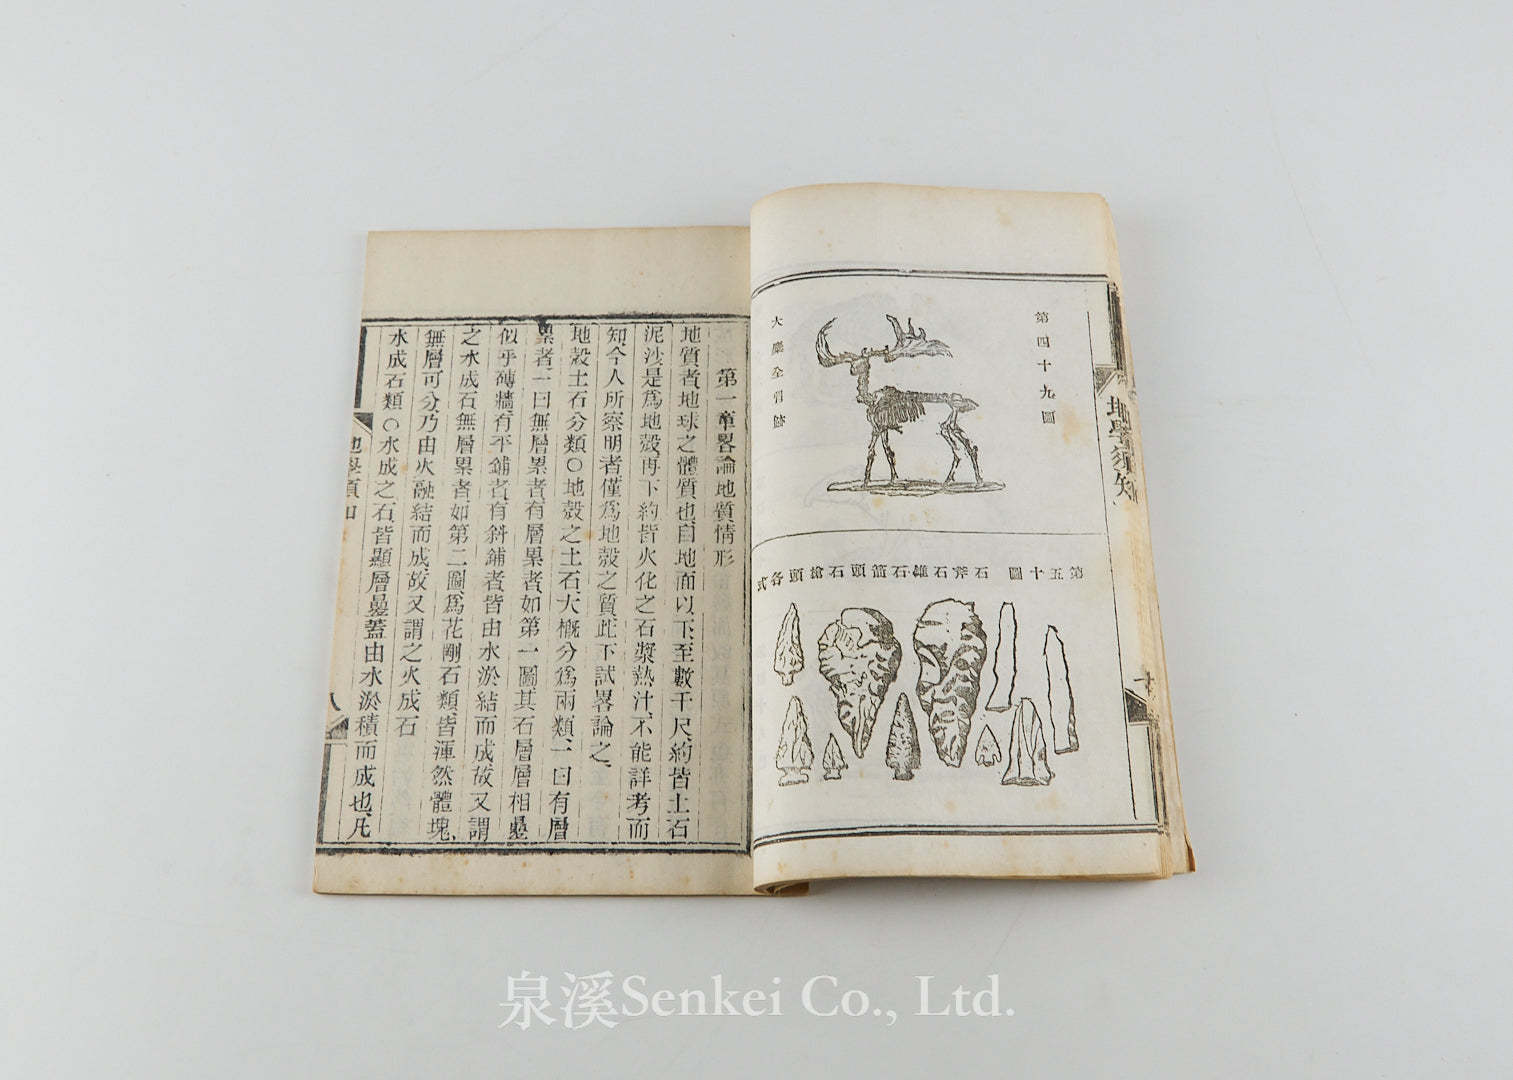 地學須知
第四十九圖
大麋全骨跡
第五十圖 石斧石錐石箭頭石槍頭各式
第一章畧論地質情形
地質者地球之體質也、自地面以下至數千尺、約皆土石
泥沙是爲地殼、再下約皆火化之石漿熱汁、不能詳考而
知、今人所察明者僅爲地殼之質、此下試畧論之、
地殼土石分類○地殼之土石、大概分爲兩類、一曰有層
累者、一曰無層累者、有層累者、如第一圖其石層層相疊
似乎磚牆、有平鋪者、有斜鋪者、皆由水淤結而成、故又謂
之水成石、無層累者、如第二圖、爲花剛石類、皆渾然體塊、
無層可分、乃由火融結而成、故又謂之火成石
水成石類○水成之石皆顯層疊、蓋由水淤積而成也、凡
地學須知
八
泉溪Senkei Co., Ltd.